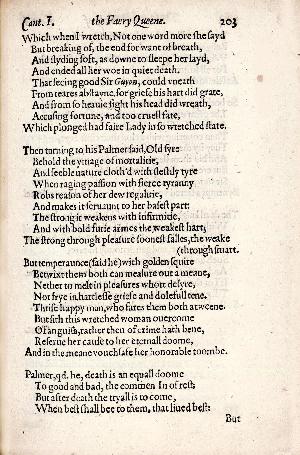 Cant. I. the Faery Queene. 203
Which when I wretch, Not one word more she sayd
But breaking of, the end for want of breath,
And slyding soft, as downe to sleepe her layd,
And ended all her woe in quiet death.
That seeing good Sir Guyon, could vneath
From teares abstayne, for griefe his hart did grate,
And from so heauie sight his head did wreath,
Accusing fortune, and too cruell fate,
Which plonged had faire Lady in so wretched state.
Then turning to his Palmer said, Old syre
Behold the ymage of mortalitie,
And feeble nature cloth'd with fleshly tyre
When raging passion with fierce tyranny
Robs reason of her dew regalitie,
And makes it seruaunt to her basest part:
The strong it weakens with infirmitie,
And with bold furie armes the weakest hart;
The strong through pleasure soonest falles, the weake
(through smart.
But temperaunce (said he) with golden squire
Betwixt them both can measure out a meane,
Nether to melt in pleasures whott desyre,
Not frye in hartlesse griefe and dolefull tene.
Thrise happy man, who fares them both atweene.
But sith this wretched woman ouercome
Of anguish, rather then of crime hath bene,
Reserue her cause to her eternall doome,
And in the meane vouchsafe her honorable toombe.
Palmer, qd. he, death is an equall doome
To good and bad, the common In of rest;
But after death the tryall is to come,
When best shall bee to them, that liued best:
But